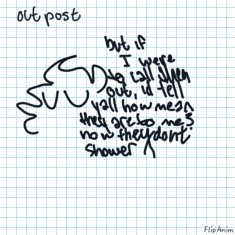 out post
but if
I were
to call them
out, id tell
yall how mean
they are to me?
now they dont
shower
FlipAnim